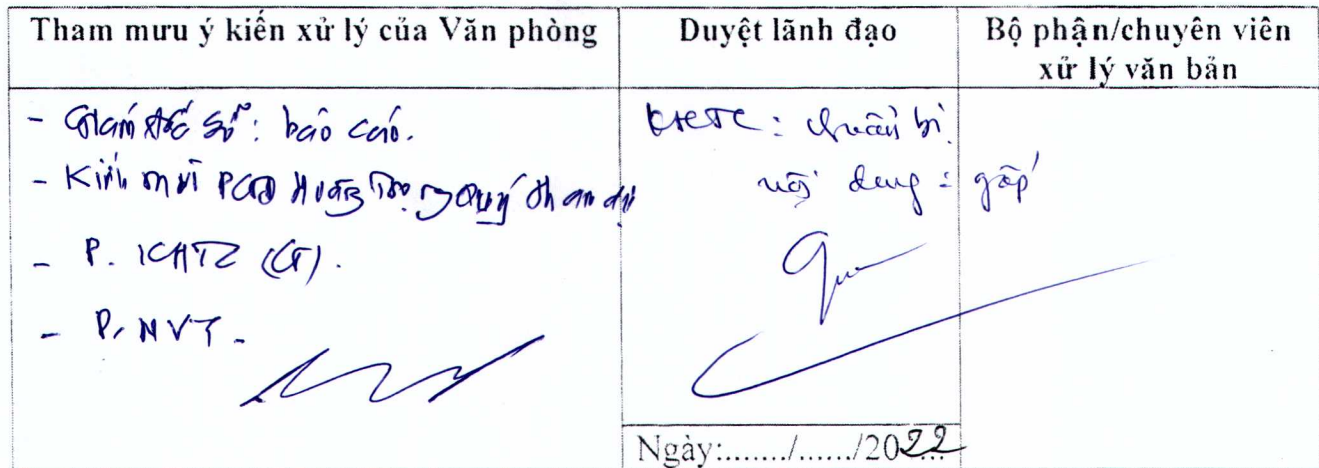 Tham mưu ý kiến xử lý của Văn phòng
Duyệt lãnh đạo
Bộ phận/chuyên viên
xử lý văn bản
- Giám đốc Sở: báo cáo.
- Kính mời PGĐ Trọng Quý tham dự
- P. KHTC (CT).
- P. NVT.
KHTC: chuẩn bị
nội dung gấp
Ngày:......./....../2022